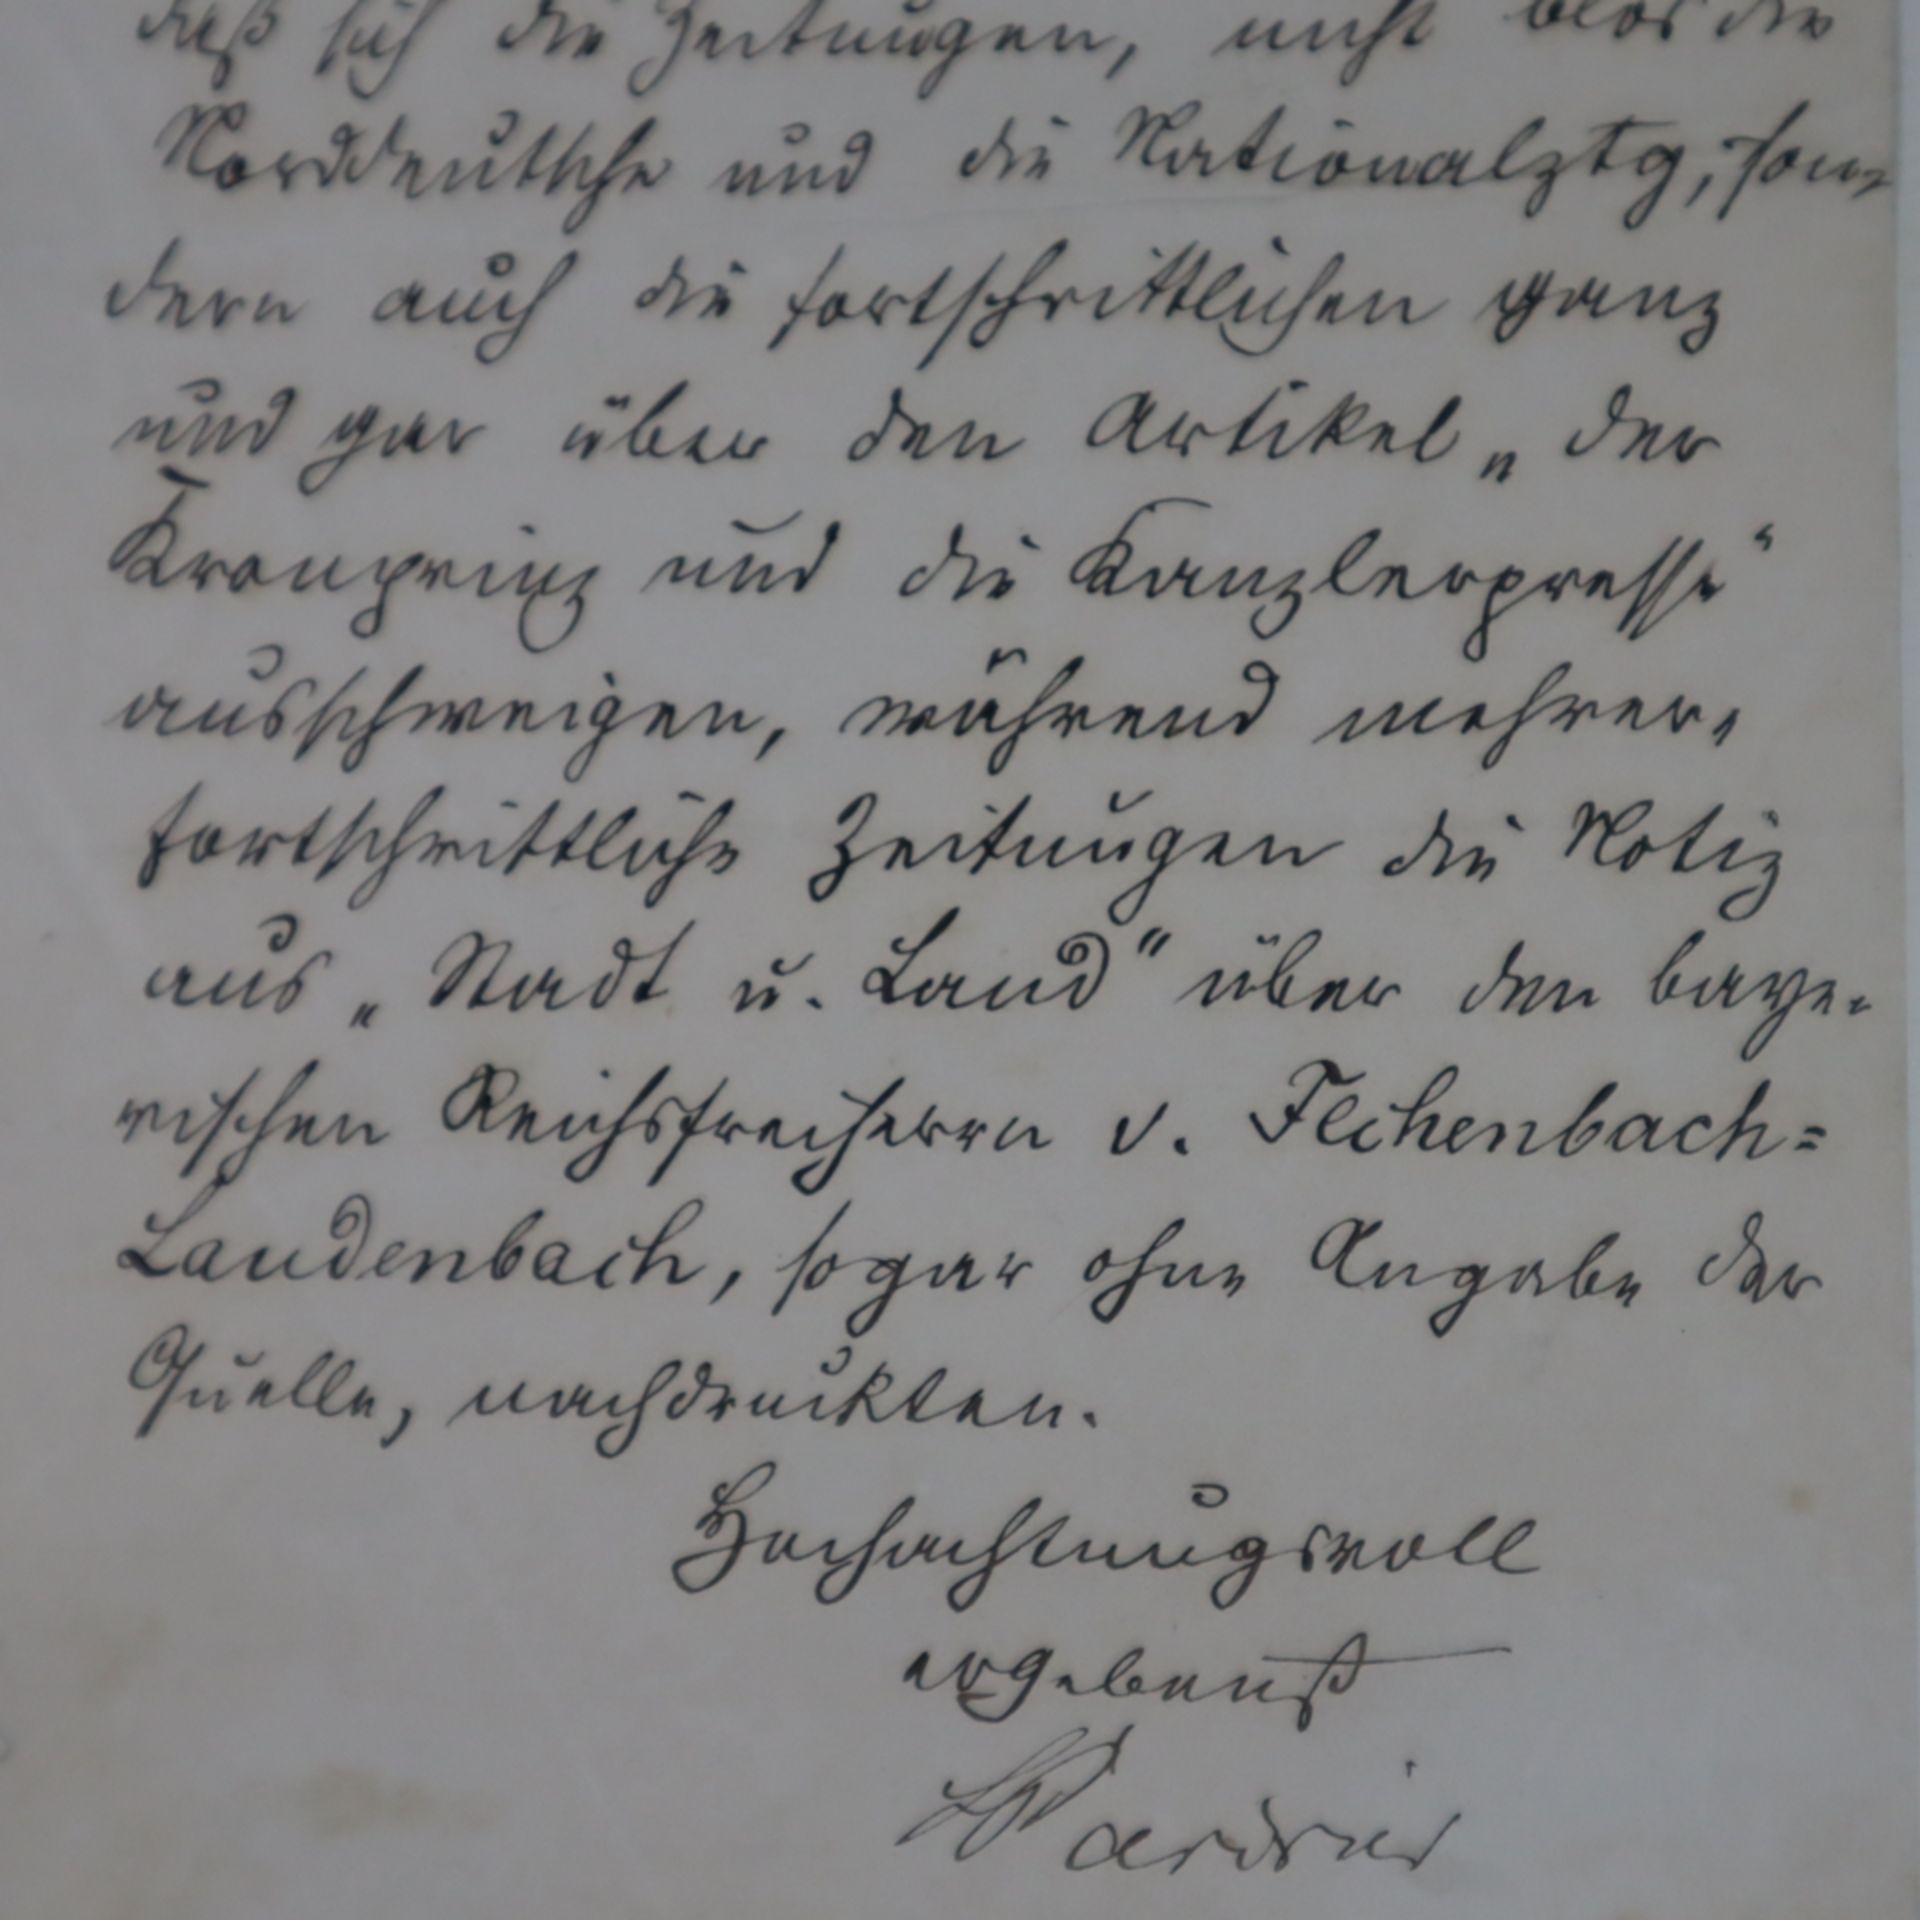 daß sich die Zeitungen, nicht blos die
Norddeutsche und die Nationalztg, son-
dern auch die fortschrittlichen ganz
und gar über den Artikel „der
Kronprinz und die Kanzlerpresse“
ausschweigen, während mehrere
fortschrittliche Zeitungen die Notiz
aus „Stadt u. Land“ über den baye-
rischen Reichsfreiherrn v. Fechenbach=
Laudenbach, sogar ohne Angabe der
Quelle, nachdruckten.
Hochachtungsvoll
ergebenst